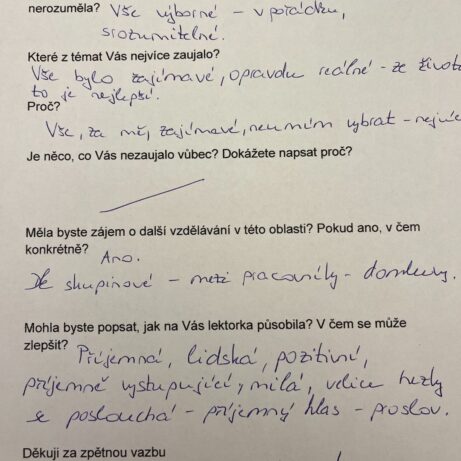 nerozuměla? Vše výborné – v pořádku,
srozumitelné.
Které z témat Vás nejvíce zaujalo?
Vše bylo zajímavé, opravdu reálné – ze života
to je nejlepší.
Proč?
Vše, za mě, zajímavé, neumím vybrat –
Je něco, co Vás nezaujalo vůbec? Dokážete napsat proč?
Měla byste zájem o další vzdělávání v této oblasti? Pokud ano, v čem
konkrétně? Ano.
skupinové – mezi pracovníky –
Mohla byste popsat, jak na Vás lektorka působila? V čem se může
zlepšit? Příjemná, lidská, pozitivní,
příjemně vystupující, milá, velice hezky
se poslouchá – příjemný hlas – proslov.
Děkuji za zpětnou vazbu